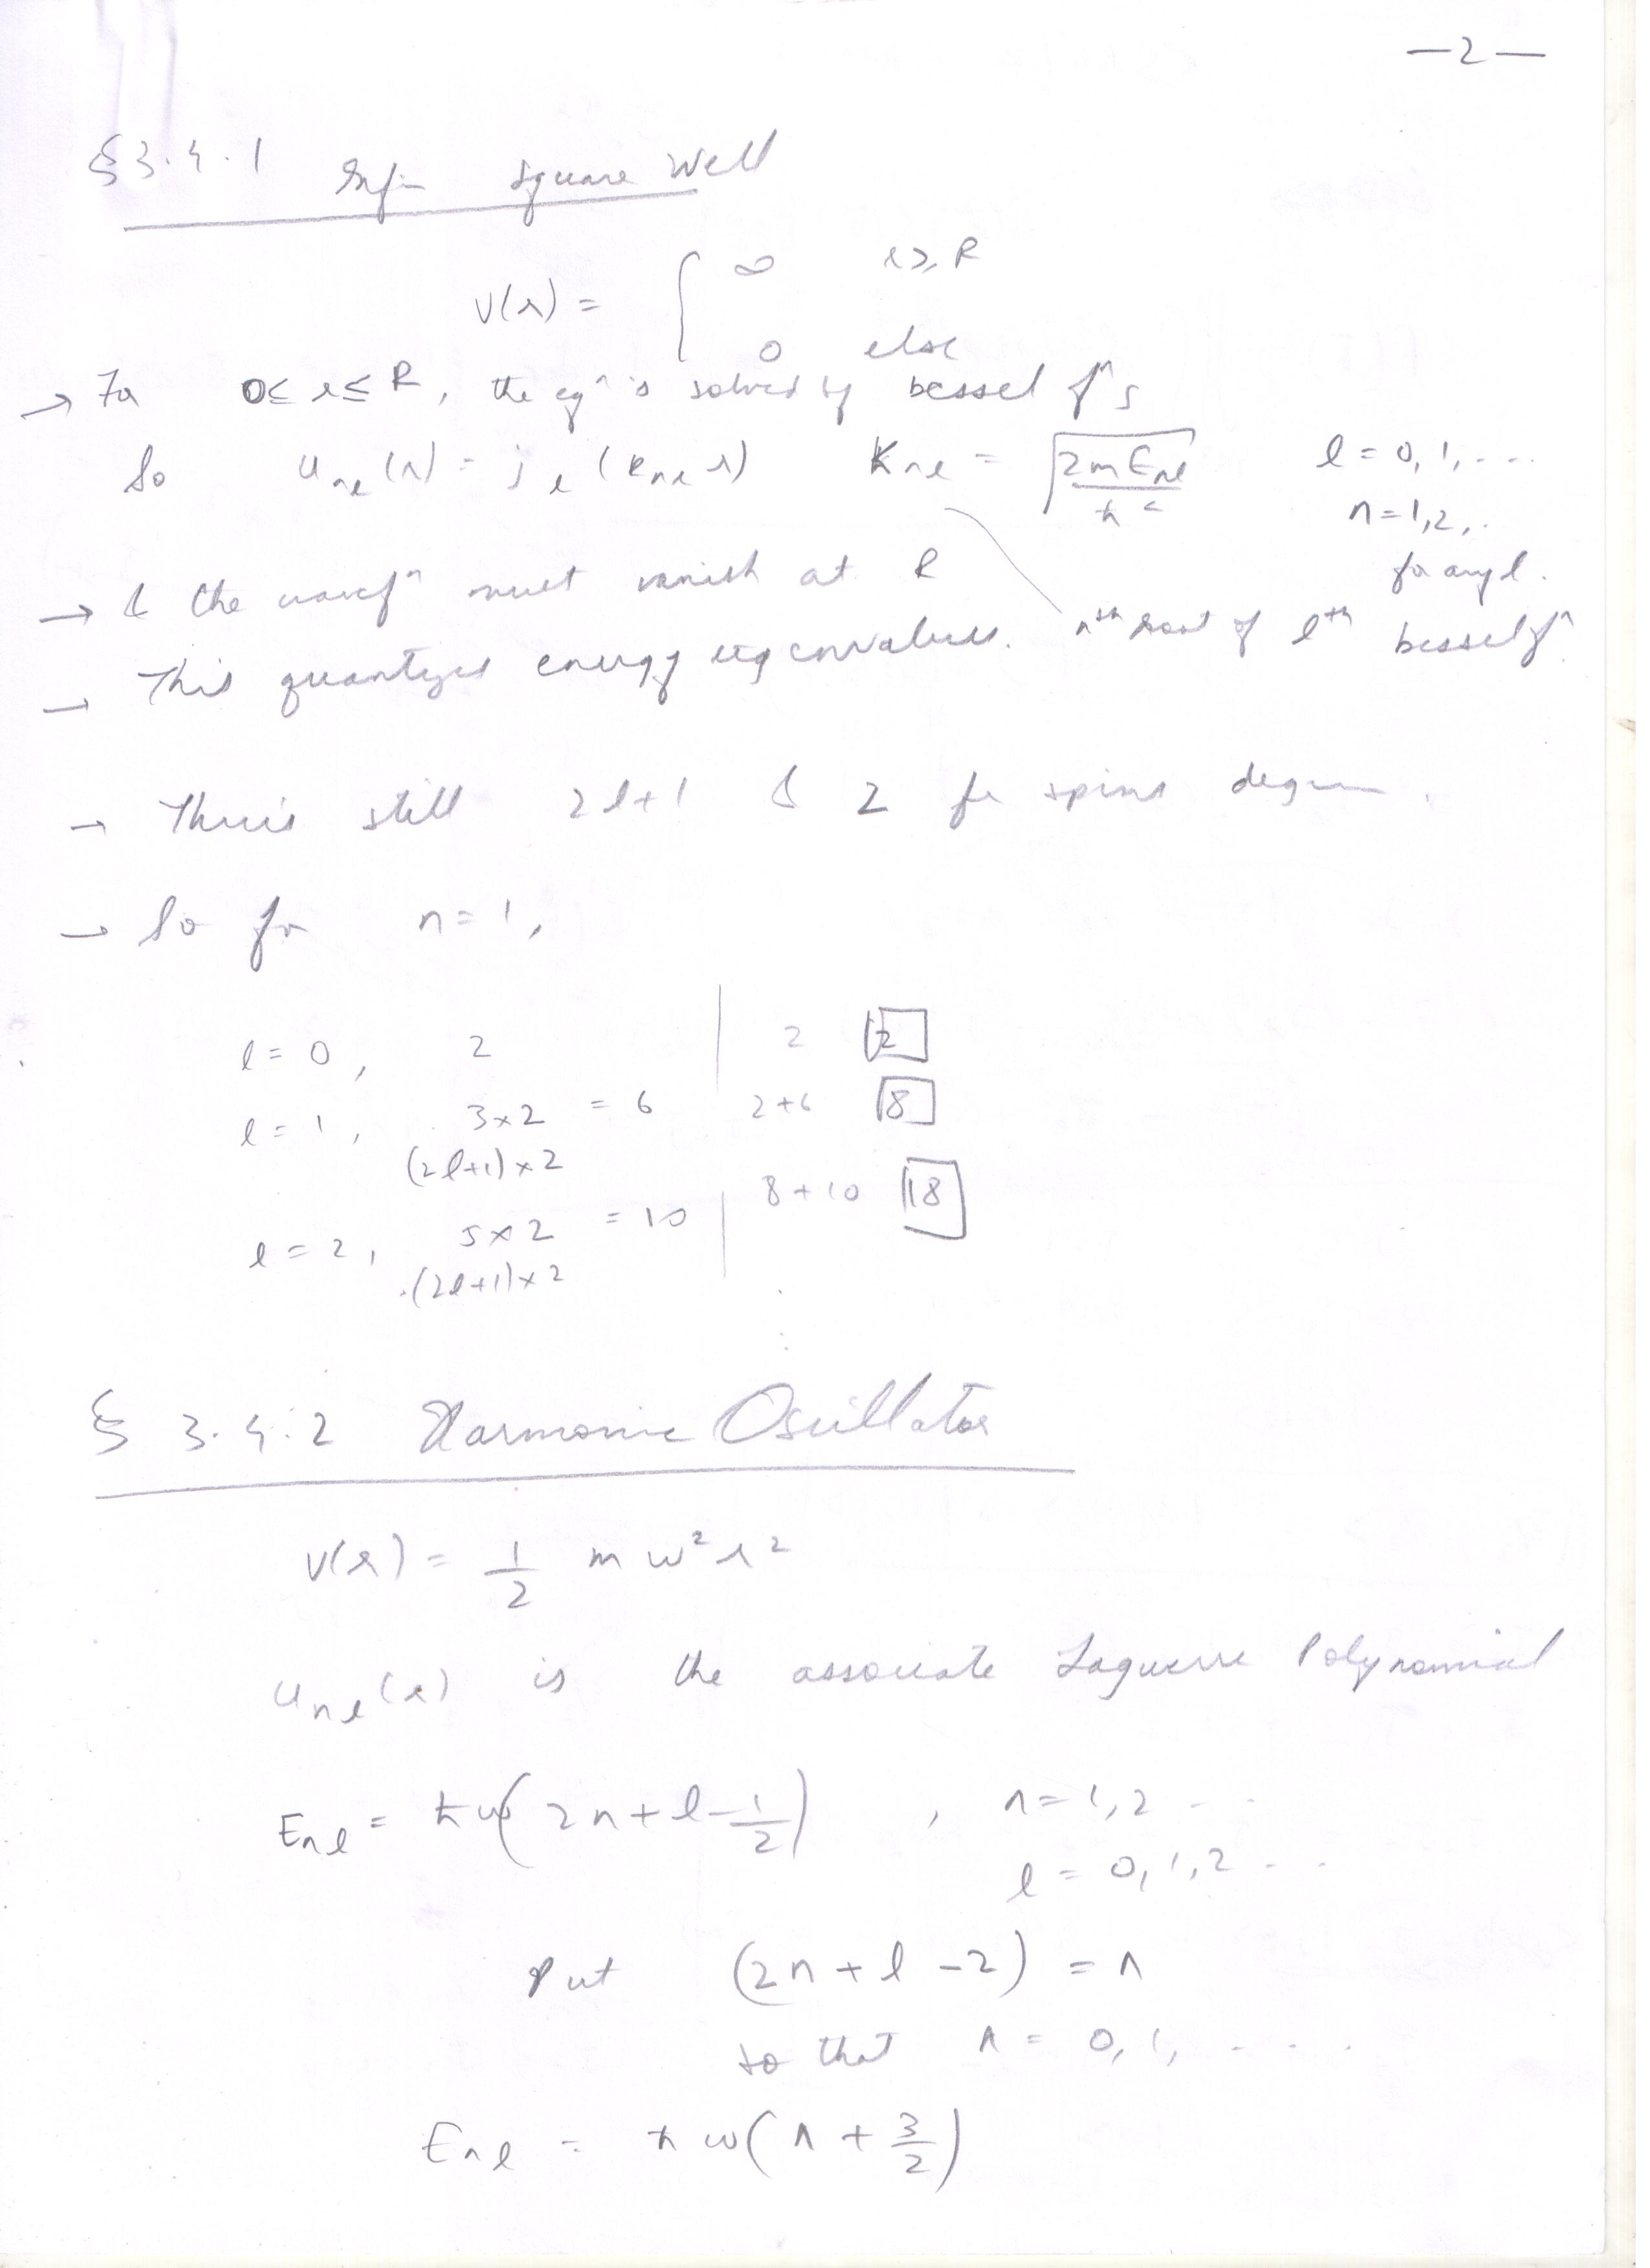 —2—
§3.4.1 Infin Square Well
V(r) = { ∞ r ≥ R
0 else
→ For 0 ≤ r ≤ R, the eqⁿ is solved by bessel fⁿs
So u_nl(r) = j_l(k_nl r) K_nl = √(2mE_nl/ħ²) l = 0, 1, ...
n = 1, 2, ..
for any l.
→ & the wavefⁿ must vanish at R
nth root of lth besselfⁿ
→ This quantizes energy eigenvalues.
→ There is still 2l+1 & 2 for spins degen.
→ So for n = 1,
l = 0, 2 | 2 [2]
l = 1, 3×2 = 6 2+6 [8]
(2l+1)×2
8+10 [18]
l = 2, 5×2 = 10
(2l+1)×2
§ 3.4.2 Harmonic Oscillator
V(r) = 1/2 m ω² r²
u_nl(r) is the associate Laguerre Polynomial
E_nl = ħω(2n + l - 1/2) , n = 1, 2 ...
l = 0, 1, 2 ...
Put (2n + l - 2) = Λ
so that Λ = 0, 1, ....
E_nl = ħω(Λ + 3/2)